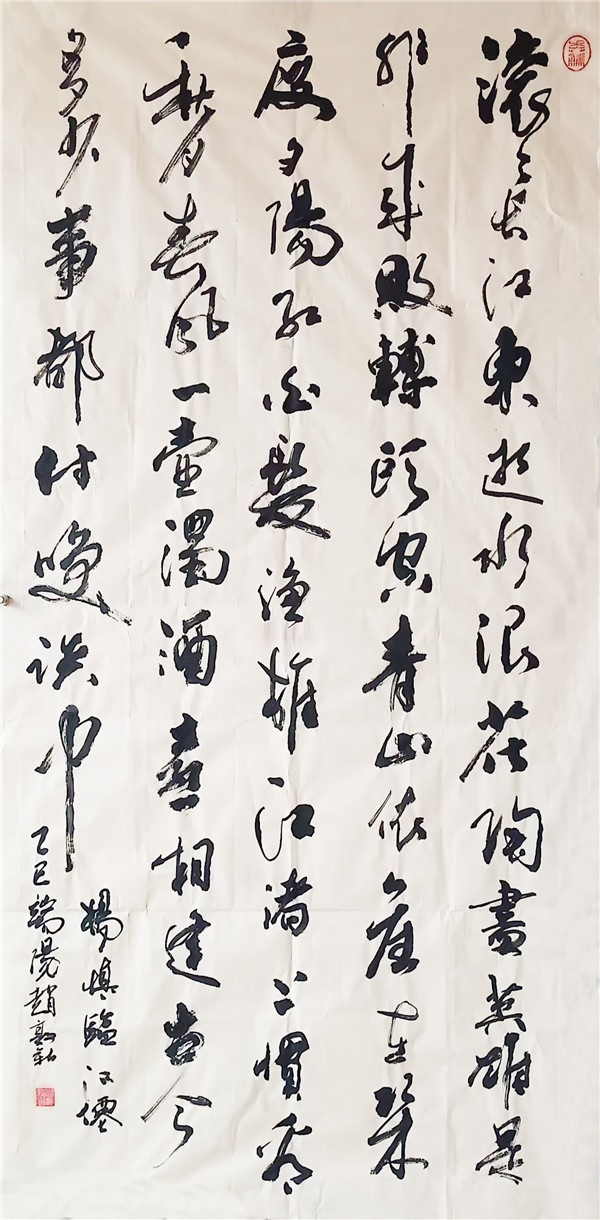 滚〻長江東逝水浪花陶盡英雄是
非成敗轉頭空青山依舊在幾
度夕陽紅白髮漁樵江渚上慣看
秋月春風一壺濁酒喜相逢古今
多少事都付笑談中
楊慎臨江僊
乙巳端陽趙